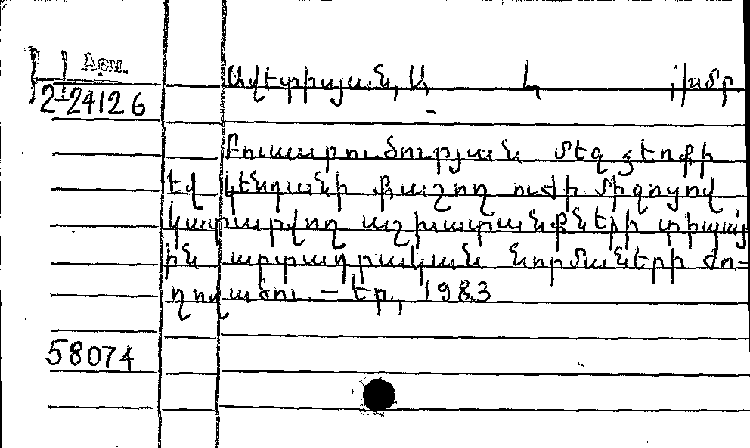 Արտ.
2-24126
Ավետիսյան, Ա. Կ. խմբ
Բուսաբուծության մեջ ձեռքի
եվ կենդանի քաշող ուժի միջոցով
կատարվող աշխատանքների տիպայ
ին արտադրական նորմաների ժո-
ղովածու. — Եր., 1983
58074